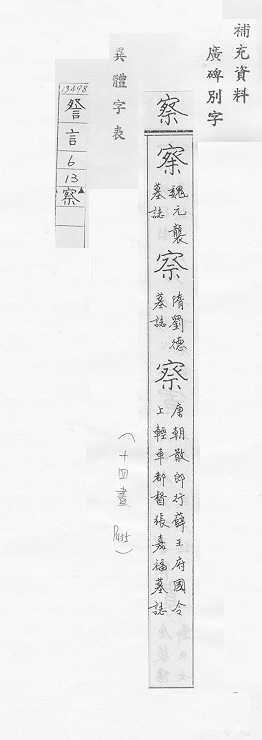 補充資料
廣碑別字
察
察
魏元襲
墓誌
察
隋劉德
墓誌
察
唐朝散郎行薛王府國令
上輕車都督張嘉福墓誌
(十四畫
異體字表
13498
詧
言
6
13
察▲